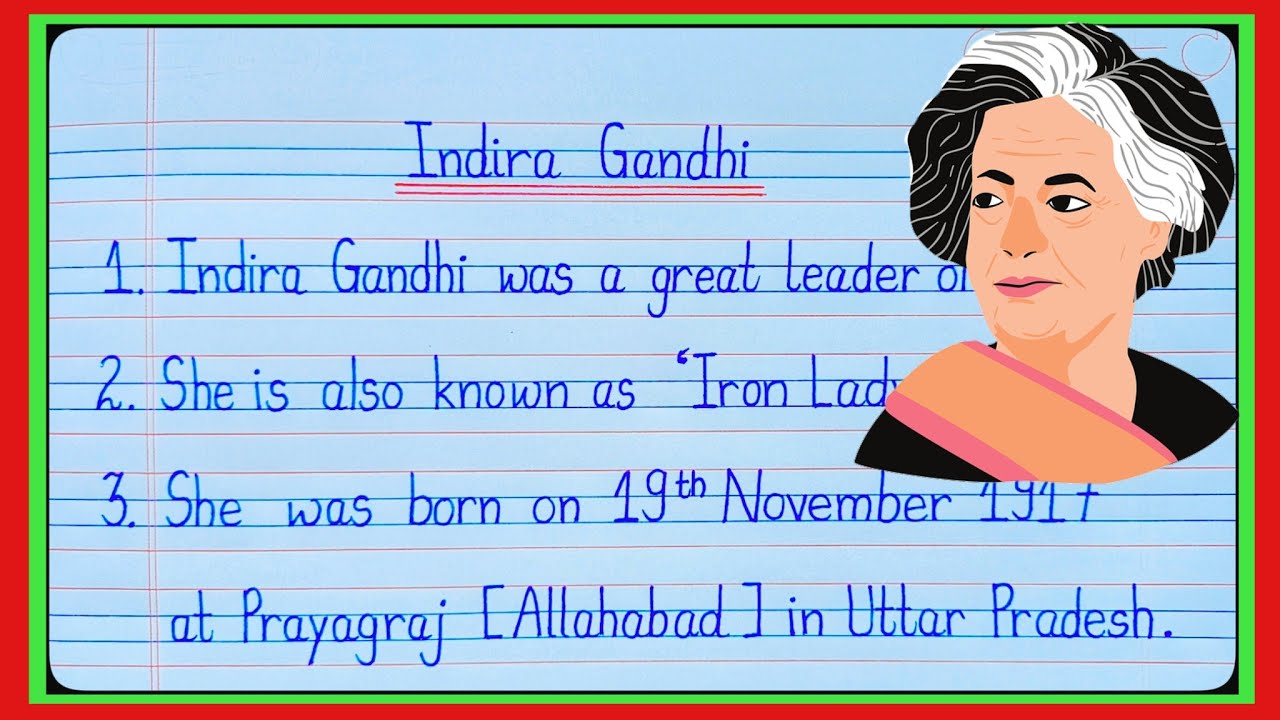 Indira Gandhi
1. Indira Gandhi was a great leader
2. She is also known as 'Iron Lady
3. She was born on 19th November 1917
at Prayagraj [Allahabad] in Uttar Pradesh.